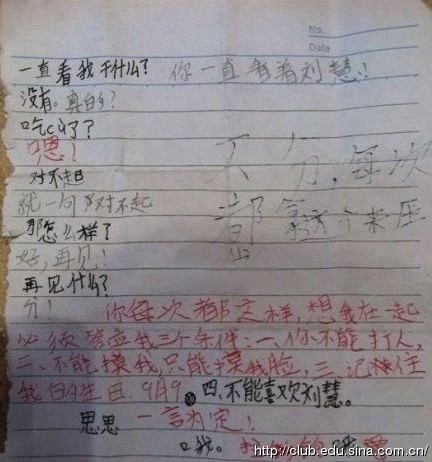 No.
Date
一直看我干什么? 你一直看着刘慧!
没有。真的?
吃c了?
嗯!
对不起
就一句对不起
不分,每次
都拿这个来压
那怎么样了
好,再见!
再见什么?
分! 你每次都这样,想我在一起
必须答应我三个条件:一、你不能打人,
二、不能摸我,只能摸我脸,三、记住
我的生日.9月9. 四、不能喜欢刘慧。
思思 一言为定!
http://club.edu.sina.com.cn/